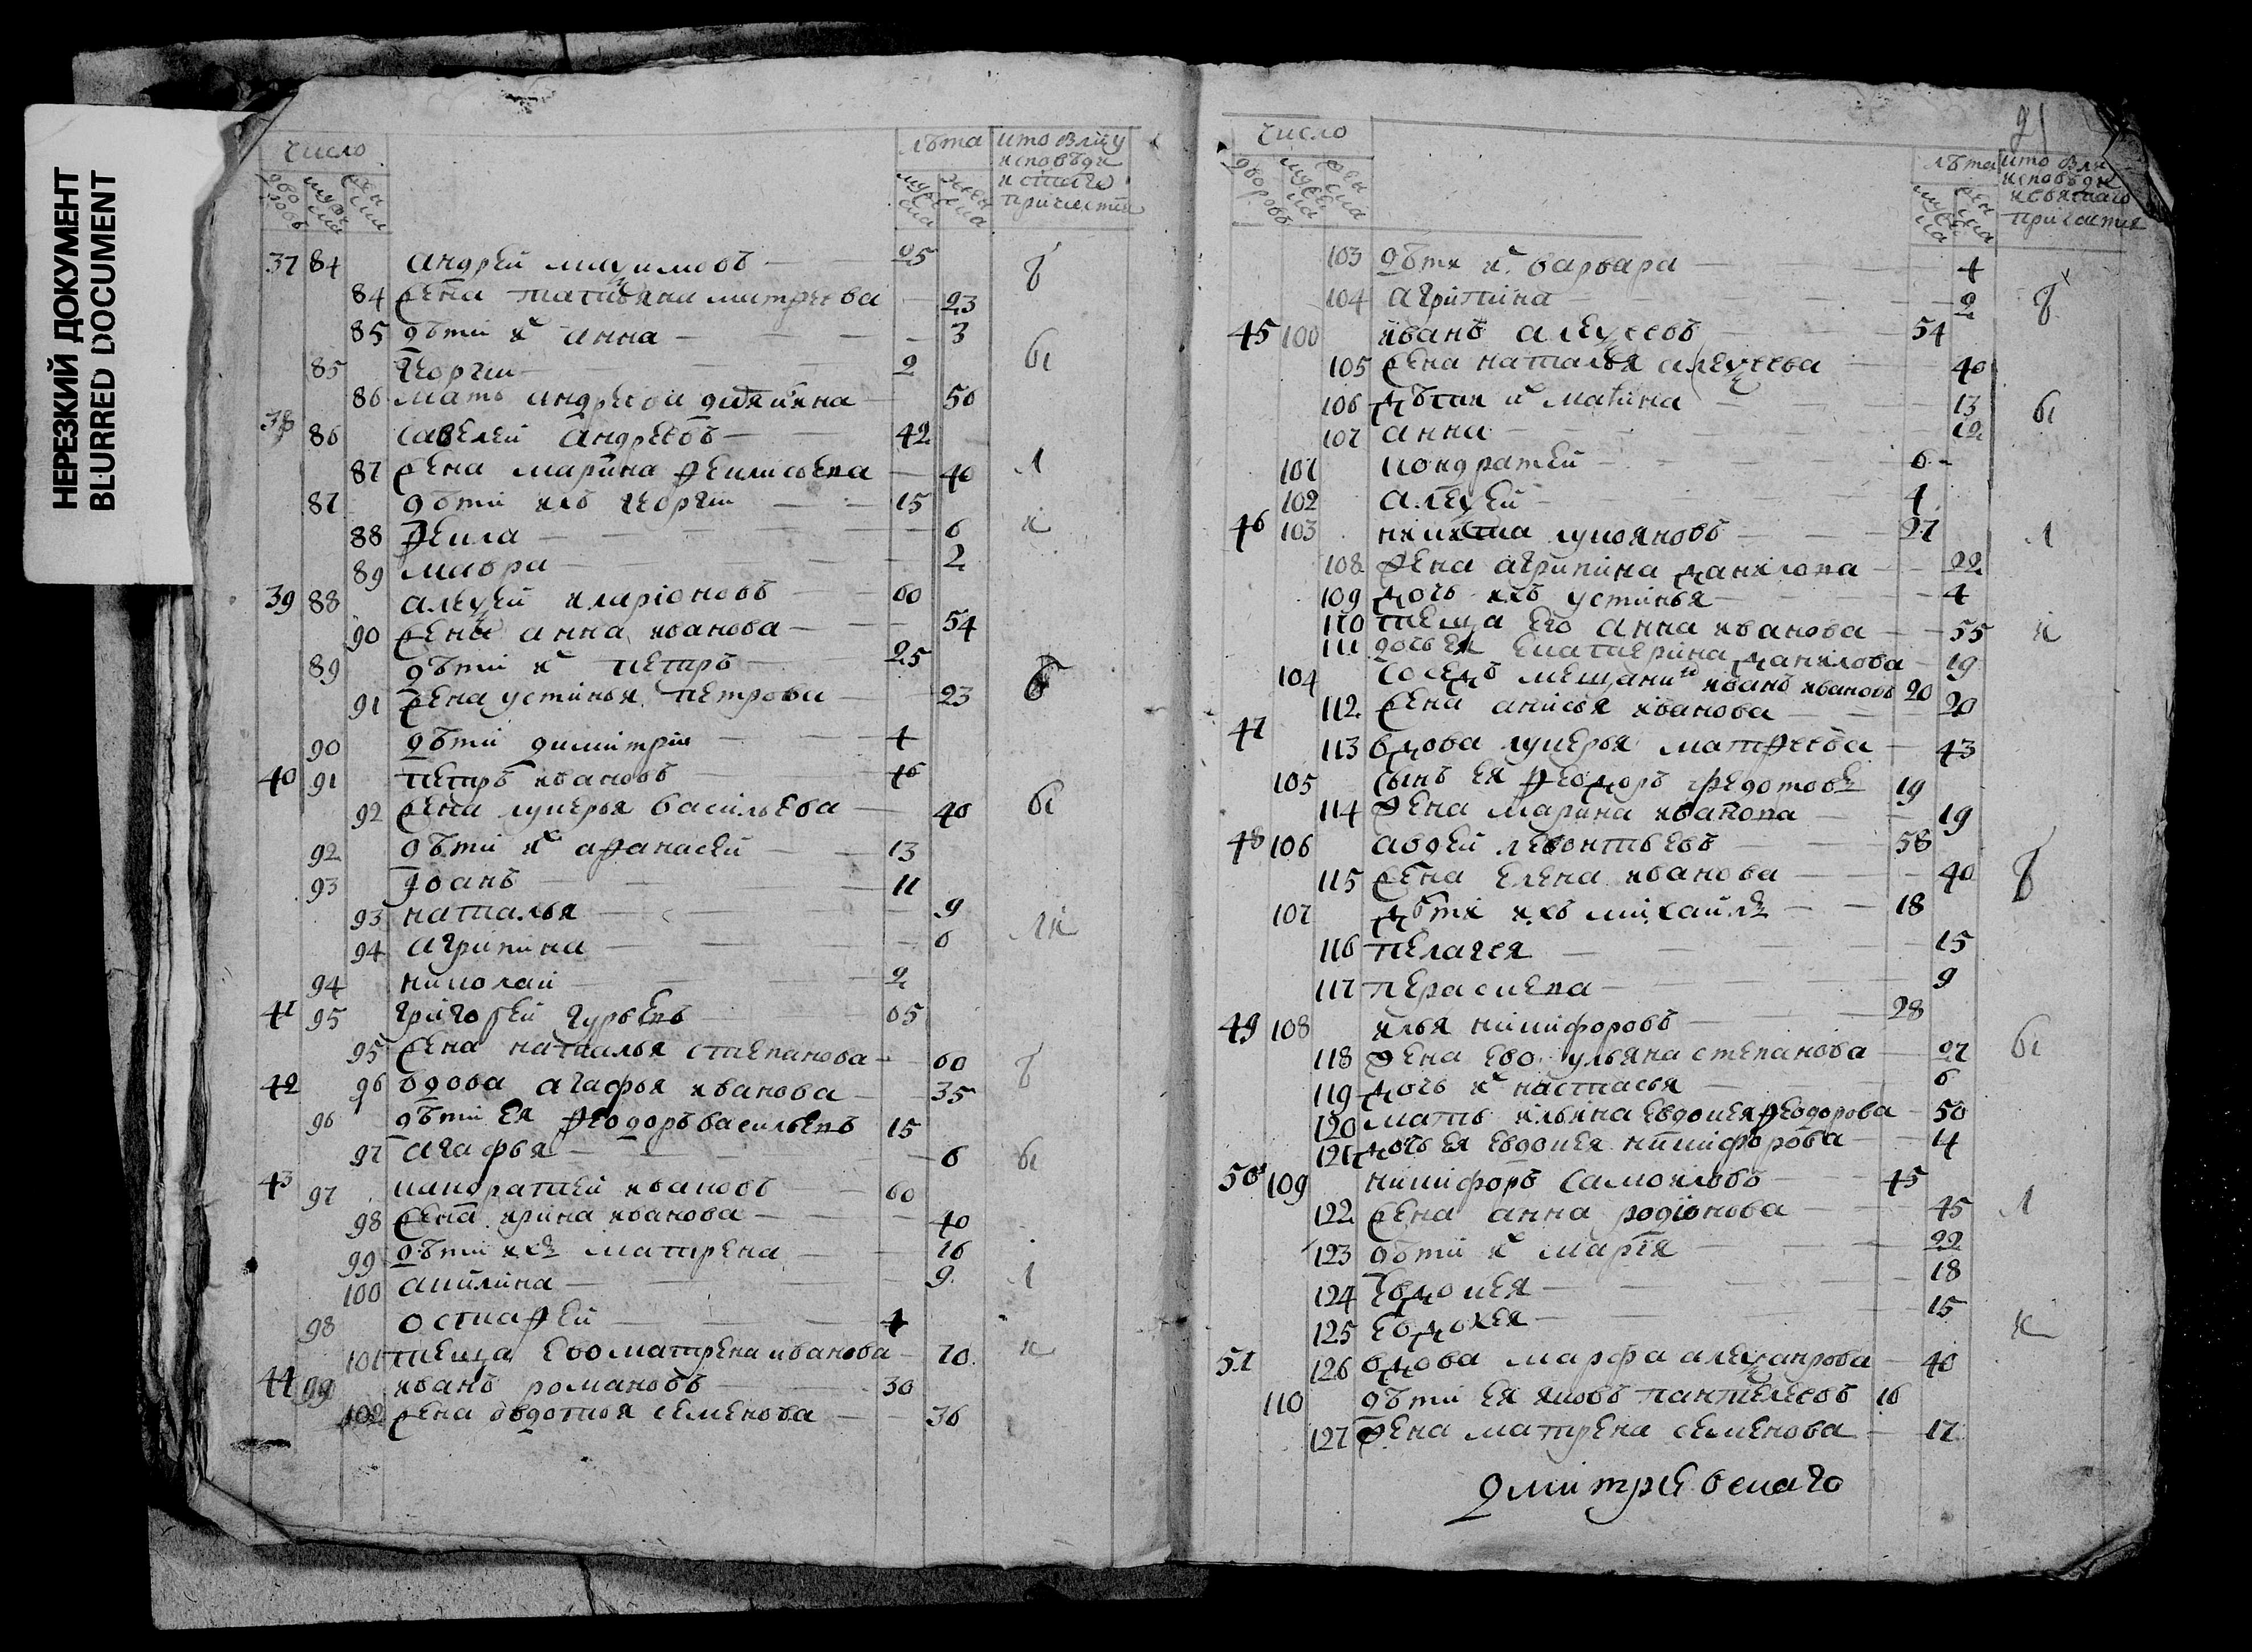 НЕРЕЗКИЙ ДОКУМЕНТ
BLURRED DOCUMENT
число
лѣта
дворовъ
мужеска
женска
мужеска
женска
кто влицу
исповѣди
и стаго
причастия
37 84 андрей 25
84 жена татьяна митреева 23
85 дѣти их анна 3
85 георгии 2
86 мать андреова 50
38 86 савелей андреевъ 42
87 жена марина 40
87 дѣти ихъ георгии 15
88 фекла 6
89 мавра 2
39 88 алеѯей иларионовъ 60
90 жена анна иванова 54
89 дѣти их петръ 25
91 жена устинья петрова 23
90 дѣти димитрии 4
40 91 петръ ивановъ 46
92 жена лукерья васильева 40
92 дѣти их афанасей 13
93 иоанъ 11
93 наталья 9
94 агрипина 6
94 николай 2
41 95 григорей гурьевъ 65
95 жена наталья степанова 60
42 96 вдова агафья иванова 35
96 дѣти ея феодоръ васильевъ 15
97 агафья 6
43 97 кондратей ивановъ 60
98 жена ирина иванова 40
99 дѣти ихъ матрена 16
100 акилина 9
98 остафей 4
101 теща ево матрена иванова 70
44 99 иванъ романовъ 30
102 жена овдотья семенова 36
21
число
лѣта
дворовъ
мужеска
женска
мужеска
женска
исповѣди
и святаго
причастия
103 дѣти их варвара 4
104 агрипина 2
45 100 иванъ алеѯеевъ 54
105 жена наталья алеѯеева 40
106 дѣти их 13
107 анна 12
101 кондратей 6
102 алеѯей 4
46 103 никита лукояновъ 27
108 жена агрипина данилова 22
109 дочь ихъ устинья 4
110 теща его анна иванова 55
111 дочь ея екатерина данилова 19
104 соседъ мещанинъ иванъ ивановъ 20
112 жена анисья иванова 20
47 113 вдова лукерья матфеева 43
105 сынъ ея феодоръ федотовъ 19
114 жена марина иванова 19
48 106 авдей левонтьевъ 58
115 жена елена иванова 40
107 дѣти ихъ михаилъ 18
116 пелагея 15
117 пераскева 9
49 108 илья никифоровъ 28
118 жена ево ульяна степанова 27
119 дочь их настасья 6
120 мать ильина евдокея феодорова 50
121 дочь ея евдокея никифорова 14
50 109 никифоръ самоиловъ 45
122 жена анна родионова 45
123 дѣти их мария 22
124 евдокея 18
125 евдокея 15
51 126 вдова марфа алеѯандрова 40
110 дѣти ея яковъ пантелеевъ 16
127 жена матрена семенова 17
Дмитриевскаго